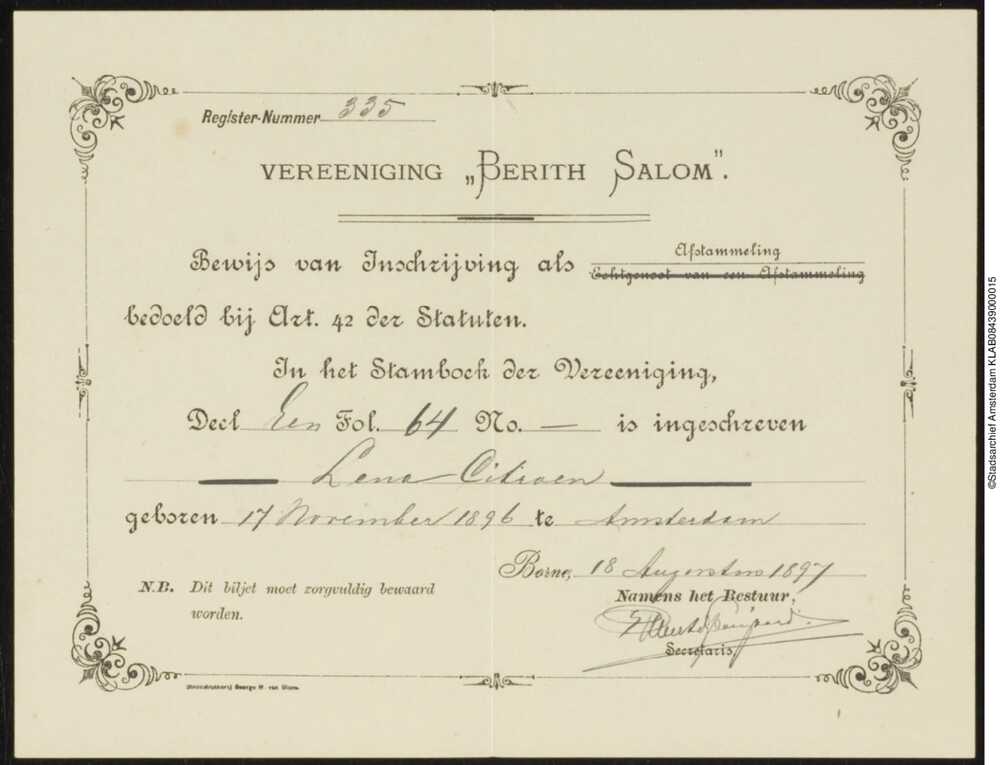 Register-Nummer 335
VEREENIGING „BERITH SALOM”.
Bewijs van Inschrijving als Afstammeling
Echtgenoot van een Afstammeling
bedoeld bij Art. 42 der Statuten.
In het Stamboek der Vereeniging,
Deel Een Fol. 64 No. — is ingeschreven
Lena Citroen
geboren 17 November 1896 te Amsterdam
Borne, 18 Augustus 1897
N.B. Dit biljet moet zorgvuldig bewaard
worden.
Namens het Bestuur,
Secretaris.
©Stadsarchief Amsterdam KLAB08439000015